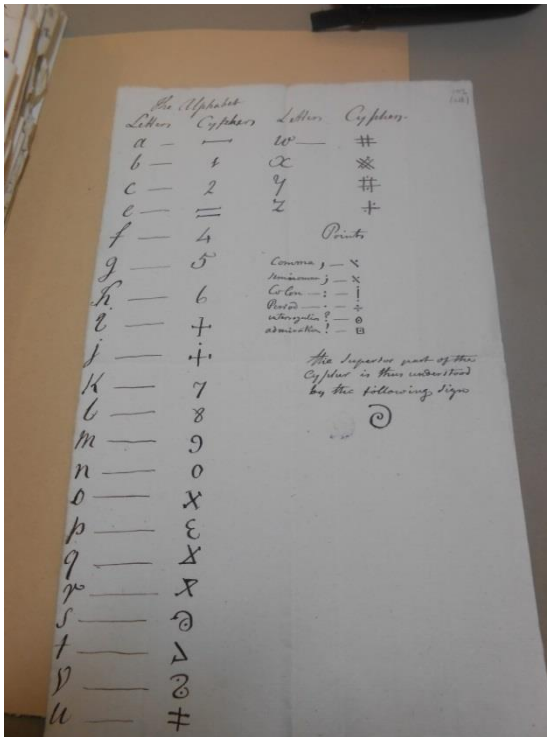 The Alphabet
Letters Cyphers
a — —
b — 1
c — 2
e — =
f — 4
g — 5
h — 6
i — +
j — ∔
k — 7
l — 8
m — 9
n — 0
o — X
p — 3
q —
r —
s —
t —
u — ‡
Letters Cyphers.
w — #
x ※
y #
z ‡
Points
Comma , —
Semicomma ; —
Colon — : — ¡
Period — . — ÷
interrogation ? — ⊙
admiration ! — ⊡
the Superior part of the
Cypher is thus understood
by the following Sign